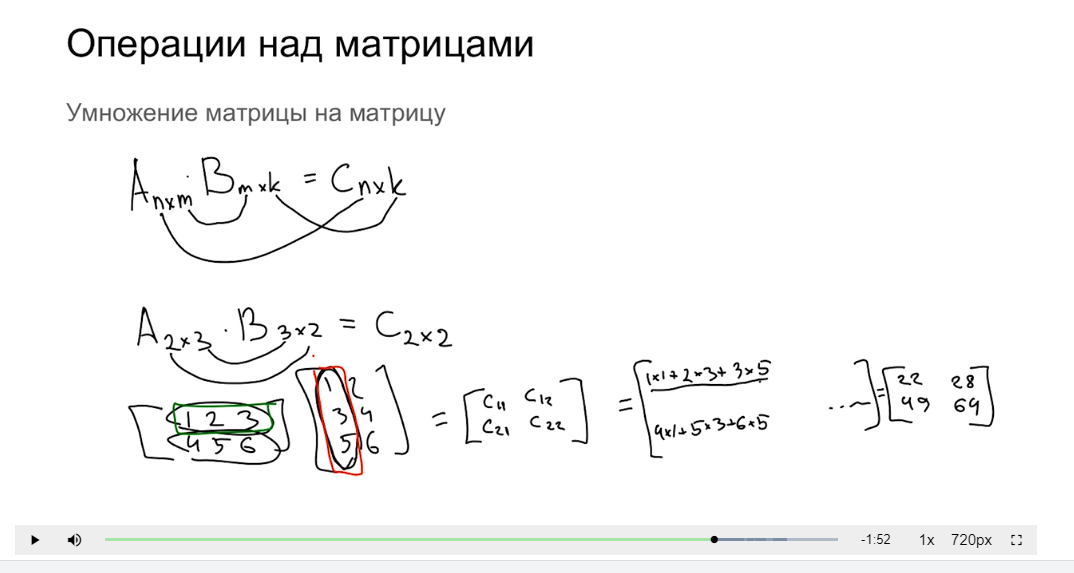 Операции над матрицами
Умножение матрицы на матрицу
A n×m · B m×k = C n×k
A 2×3 · B 3×2 = C 2×2
[1 2 3 4 5 6] [1 2 3 4 5 6] = [C11 C12 C21 C22] = [1×1+2×3+3×5 4×1+5×3+6×5 ...] = [22 28 49 64]
-1:52 1x 720px